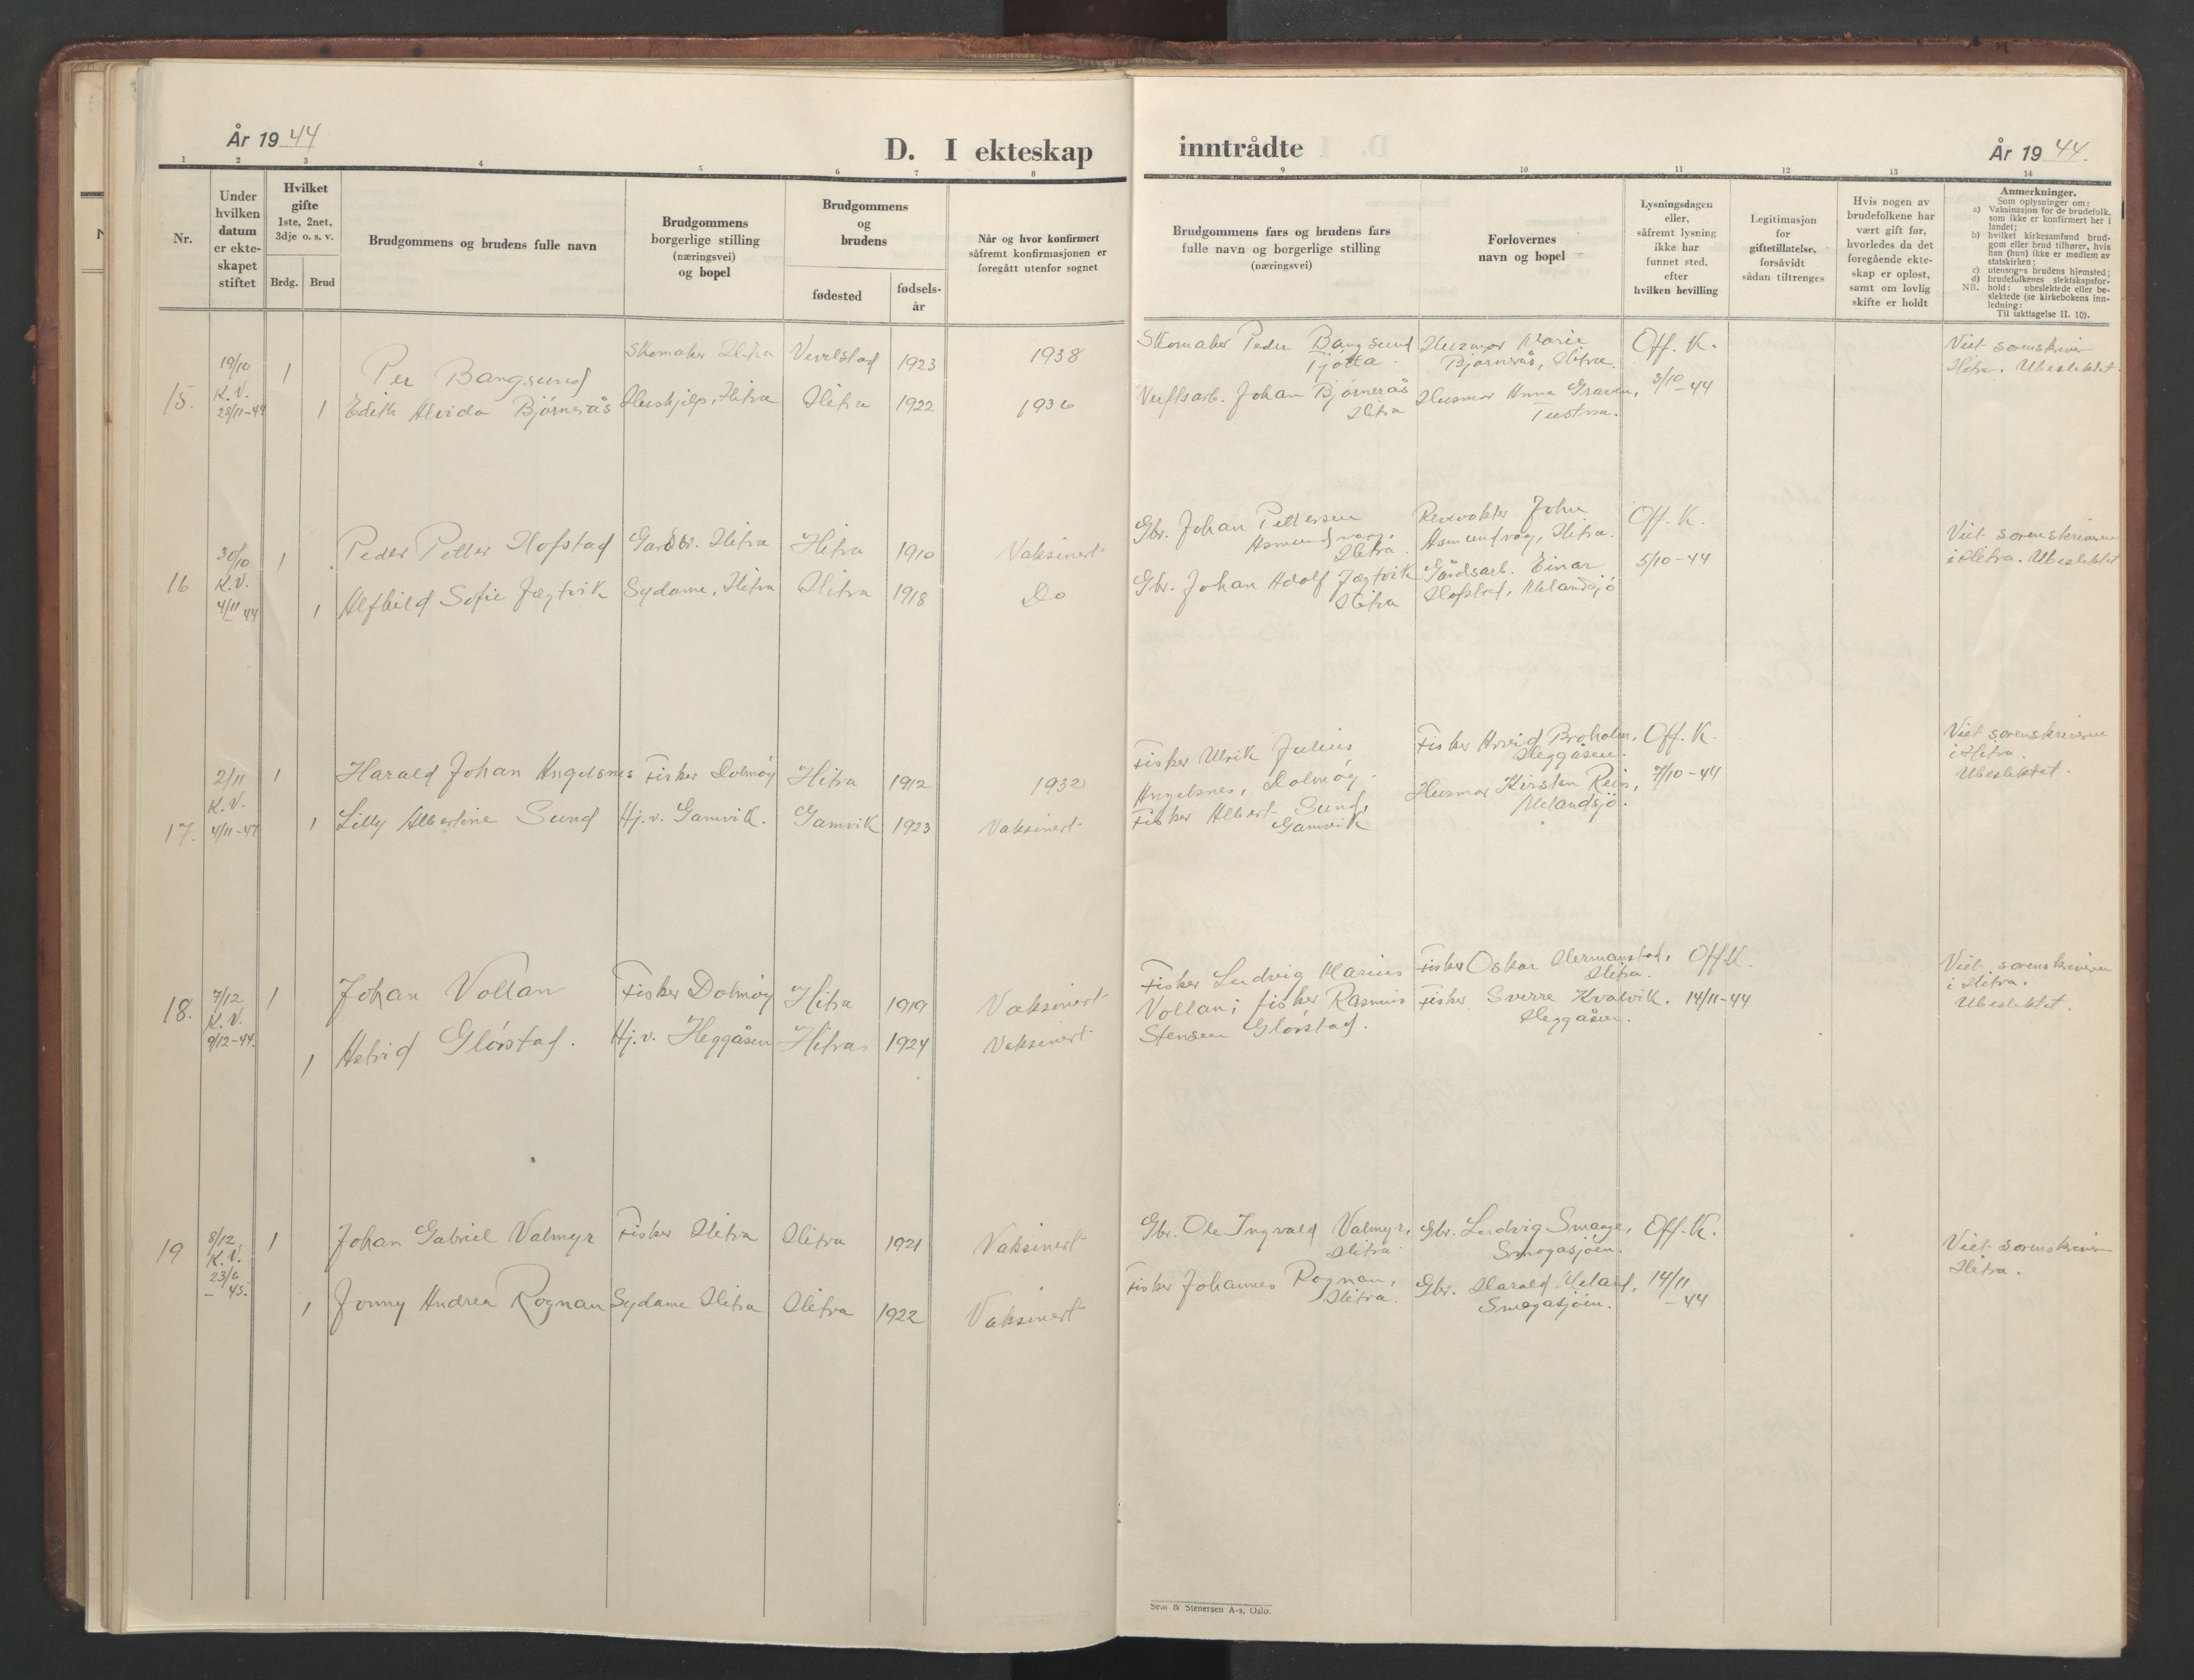 År 1944
D. I ekteskap
inntrådte
År 1944.
1 2 3 4 5 6 7 8 9 10 11 12 13 14
Nr.
Under
hvilken
datum
er ekte-
skapet
stiftet
Hvilket
gifte
1ste, 2net,
3dje o. s. v.
Brdg. Brud
Brudgommens og brudens fulle navn
Brudgommens
borgerlige stilling
(næringsvei)
og bopel
Brudgommens
og
brudens
fødested
fødsels-
år
Når og hvor konfirmert
såfremt konfirmasjonen er
foregått utenfor sognet
Brudgommens fars og brudens fars
fulle navn og borgerlige stilling
(næringsvei)
Forlovernes
navn og bopel
Lysningsdagen
eller,
såfremt lysning
ikke har
funnet sted,
efter
hvilken bevilling
Legitimasjon
for
giftetillatelse,
forsåvidt
sådan tiltrenges
Hvis nogen av
brudefolkene har
vært gift før,
hvorledes da det
foregående ekte-
skap er opløst,
samt om lovlig
skifte er holdt
Anmerkninger.
Som oplysninger om:
a) Vaksinasjon for de brudefolk,
som ikke er konfirmert her i
landet;
b) hvilket kirkesamfund brud-
gom eller brud tilhører, hvis
han (hun) ikke er medlem av
statskirken;
c) utensogns brudens hjemsted;
d) brudefolkenes slektskapsfor-
NB. hold: ubeslektede eller be-
slektede (se kirkebokens inn-
ledning:
Til iakttagelse II. 10).
15.
19/10
K.V.
28/11-44
1
Per Bangsund
Skomaker Hitra
Vevelstad
1923
1938
Skomaker Peder Bangsund
Tjøtta.
Husmor Marie
Bjørnerås, Hitra.
Off. K.
3/10-44
Viet sorenskriver
Hitra. Ubeslektet.
1
Edith Alvida Bjørnerås
Hushjelp, Hitra
Hitra
1922
1936
Verftsarb. Johan Bjørnerås
Hitra
Husmor Anna Graven,
Tustna.
16
30/10
K.V.
4/11 44
1
Peder Petter Hofstad
Gardbr. Hitra
Hitra
1910
Vaksinert
Gbr. Johan Pettersen
Asmundvaag,
Hitra.
Revevokter John
Asmundvåg, Hitra.
Off. K.
5/10-44
Viet sorenskriveren
i Hitra. Ubeslektet
1
Alfhild Sofie Jægtvik
Sydame, Hitra
Hitra
1918
Do
Gbr. Johan Adolf Jægtvik
Hitra
Gårdsarb. Einar
Hofstad, Melandsjø
17.
2/11
K.V.
4/11-44
1
Harald Johan Angelsnes
Fisker Dolmøy
Hitra
1912
1932
Fisker Ulrik Julius
Angelsnes, Dolmøy.
Fisker Arvid Broholm,
Heggåsen.
Off. K.
7/10-44
Viet sorenskriveren
i Hitra
Ubeslektet.
1
Lilly Albertine Sund
Hj.v. Gamvik.
Gamvik
1923
Vaksinert
Fisker Albert Sund,
Gamvik
Husmor Kirsten Rein,
Melandsjø.
18.
7/12
K.V.
9/12-44.
1
Johan Vollan
Fisker Dolmøy
Hitra
1919
Vaksinert
Fisker Ludvig Marius
Vollan; fisker Rasmus
Stensen Glørstad.
Fisker Oskar Hermanstad,
Hitra.
Fisker Sverre Kvalvik.
Heggåsen.
Off.K.
14/11-44
Viet sorenskriveren
i Hitra.
Ubeslektet.
1
Astrid Glørstad.
Hj.v. Heggåsen
Hitra
1924
Vaksinert
19
8/12
K.V.
23/6
- 45.
1
Johan Gabriel Valmyr
Fisker Hitra
Hitra
1921
Vaksinert
Gbr. Ole Ingvald Valmyr,
Hitra.
Gbr. Ludvig Smage,
Smagasjøen.
Off. K.
14/11
-44
Viet sorenskriveren
Hitra.
1
Jonny Andrea Rognan
Sydame Hitra
Hitra
1922
Vaksinert
Fisker Johannes Rognan,
Hitra.
Gbr. Harald Meland,
Smagasjøen.
Sem & Stenersen A-s, Oslo.